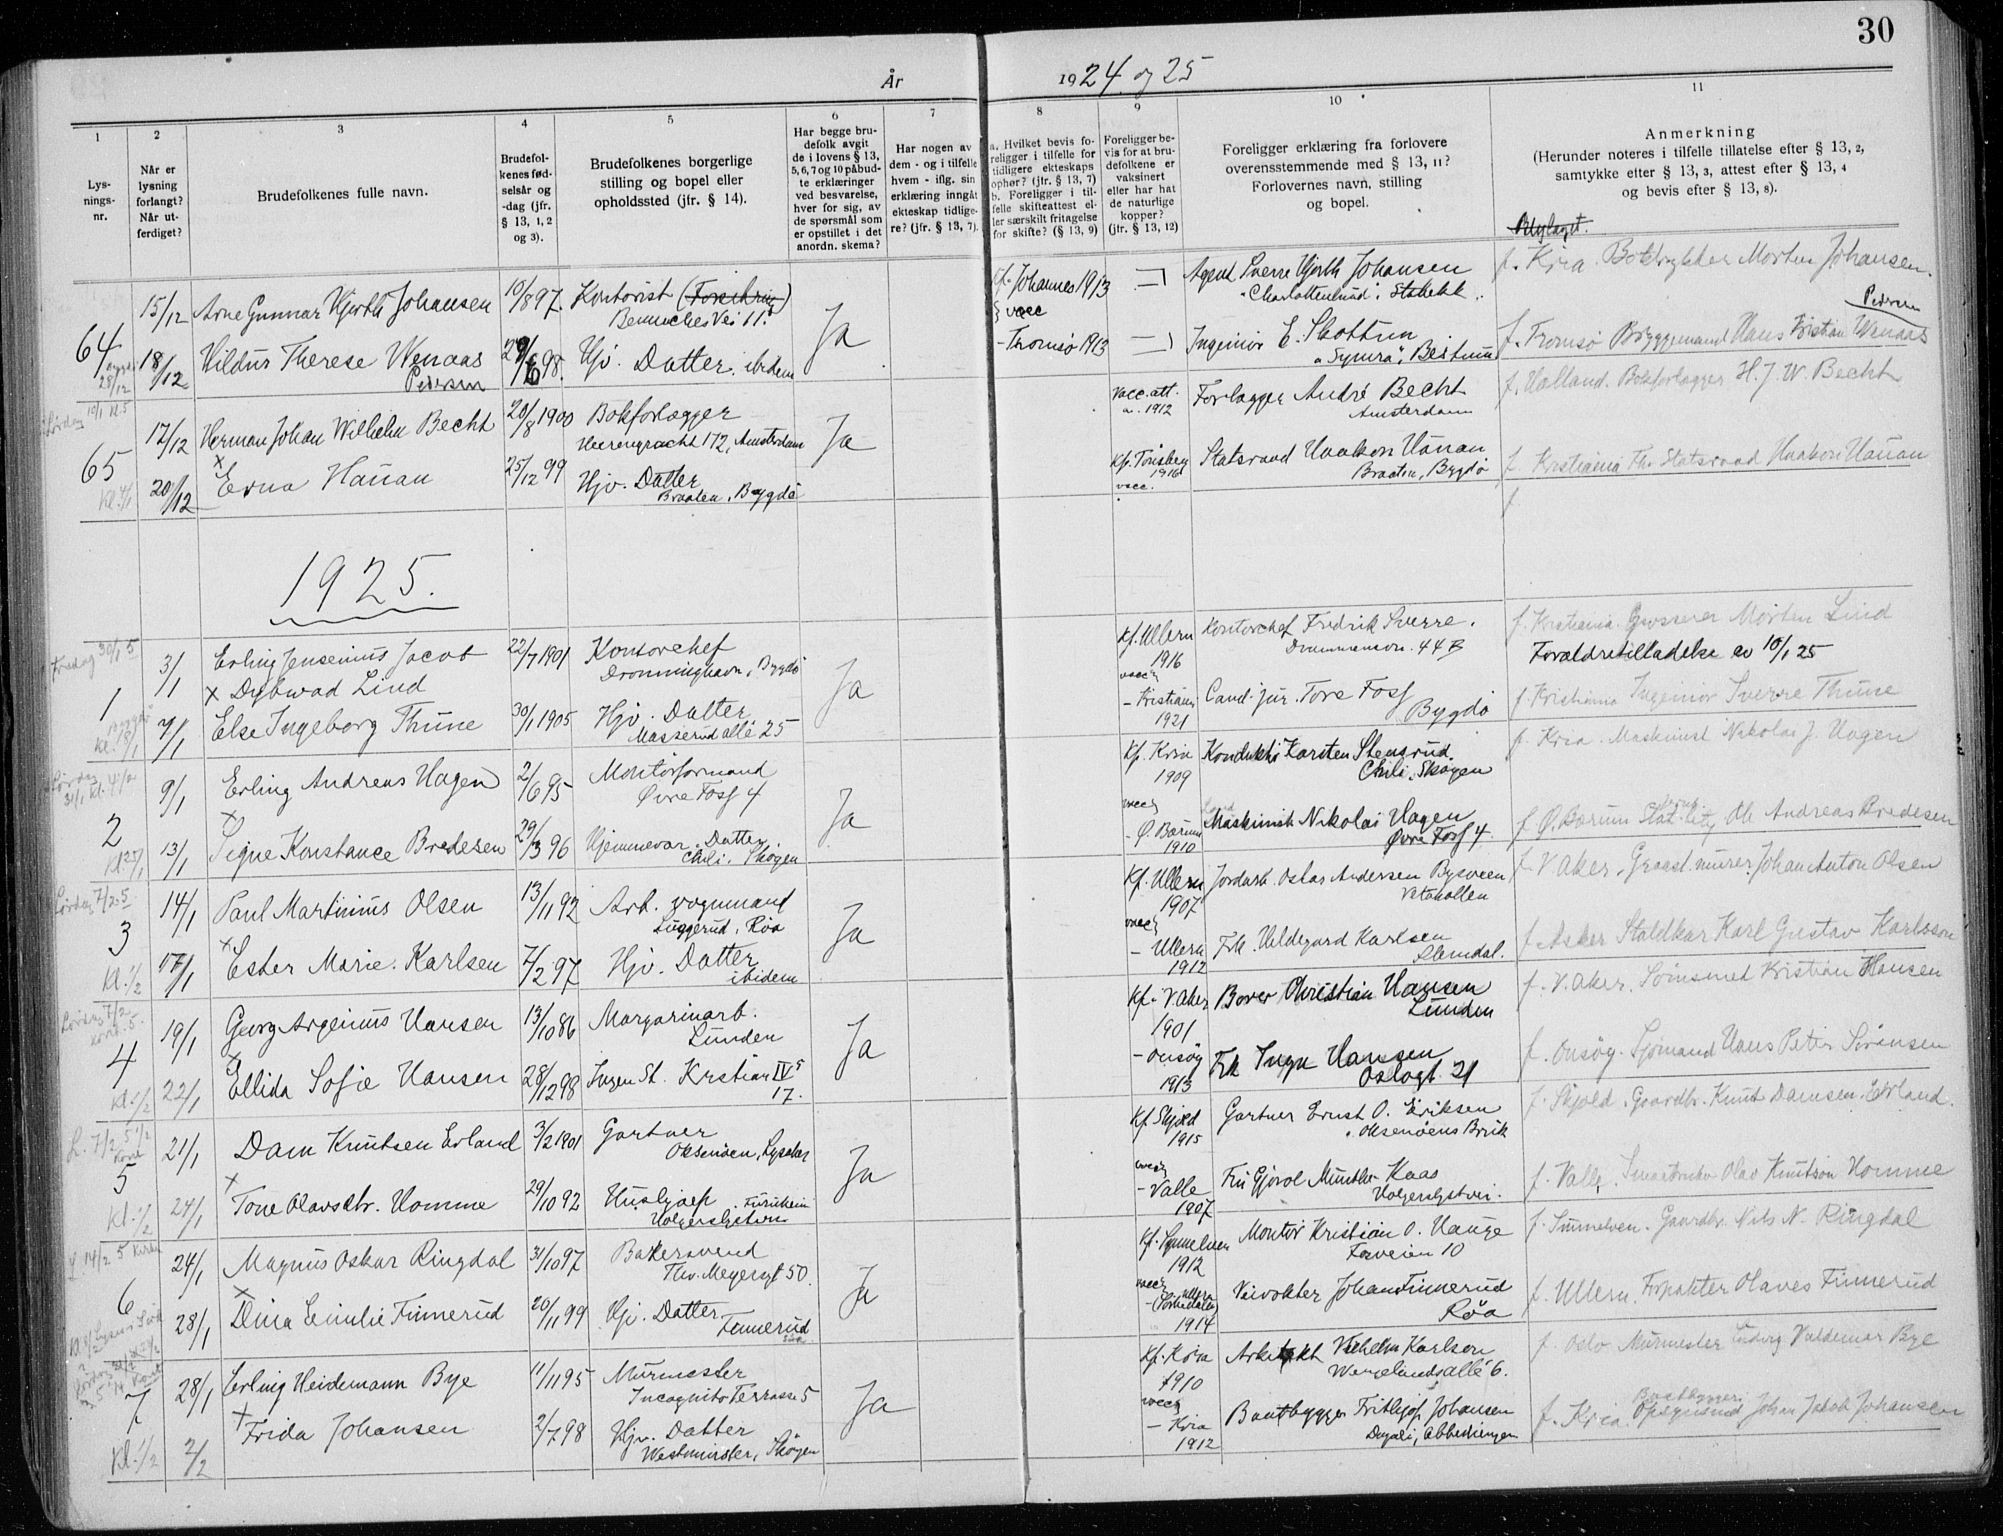 30
År 1924 og 25
1
Lys-
nings-
nr.
2
Når er
lysning
forlangt?
Når ut-
ferdiget?
3
Brudefolkenes fulle navn.
4
Brudefol-
kenes fød-
selsår og
-dag (jfr.
§ 13, 1, 2
og 3).
5
Brudefolkenes borgerlige
stilling og bopel eller
opholdssted (jfr. § 14).
6
Har begge bru-
defolk avgit
de i lovens § 13,
5, 6, 7 og 10 påbud-
te erklæringer
ved besvarelse,
hver for sig, av
de spørsmål som
er opstillet i det
anordn. skema?
7
Har nogen av
dem - og i tilfelle
hvem - iflg. sin
erklæring inngåt
ekteskap tidlige-
re? (jfr. § 13, 7).
8
a. Hvilket bevis fo-
religger i tilfelle for
tidligere ekteskaps
ophør? (jfr. § 13, 7)
b. Foreligger i til-
felle skifteattest el-
ler særskilt fritagelse
for skifte? (§ 13, 9)
9
Foreligger be-
vis for at bru-
defolkene er
vaksinert
eller har hat
de naturlige
kopper?
(jfr. § 13, 12)
10
Foreligger erklæring fra forlovere
overensstemmende med § 13, 11?
Forlovernes navn, stilling
og bopel.
11
Anmerkning
(Herunder noteres i tilfelle tillatelse efter § 13, 2,
samtykke efter § 13, 3, attest efter § 13, 4
og bevis efter § 13, 8).
64
15/12 Arne Gunnar Hjorth Johansen 10/8 97. Kontorist
Bennechesvei 11. Ja
Kf. Johannes 1913 Agent Sverre Hjorth Johansen
"Charlottenlund", Stabekk.
f. Kria. Boktrykker Morten Johansen.
vacc
18/12 Hildur Therese Wenaas 29/6 98. Hjv. Datter. ibidem
Pedersen
- Tromsø 1913 Ingeniør E. Skottun
"Symra", Bestum
f. Tromsø Bryggemand Hans Kristian Wenaas
Pedersen
28/12
65
17/12 Herman Johan Wilhelm Becht 20/8 1900 Bokforlægger
Heerengracht 172, Amsterdam Ja
vacc. att.
a. 1912 Forlægger André Becht
Amsterdam
f. Holland. Bokforlægger H. J. W. Becht
20/12 x Erna Hauan 25/12 99 Hjv. Datter
Braaten, Bygdø
Kf. Tønsberg
1916
vacc. Statsraad Haakon Hauan
Braaten, Bygdø
f. Kristiania Th. Statsraad Haakon Hauan
f
1925.
Fredag 30/1 5
1
3/1 Erling Jensenius Jacob 22/7 1901 Kontorchef
x Dybwad Lind Dronninghavn, Bygdø Ja
Kf. Ullern
1916
vacc Kontorchef Fredrik Sverre.
Drammensvn. 44 B
f. Kristiania Grosserer Morten Lind
Forældretilladelse av 10/1 25
7/1 Else Ingeborg Thune 30/1 1905 Hjv. Datter
Masserud allé 25
- Kristiania
1921 Cand. jur. Tore Foss
Bygdø
f. Kristiania Ingeniør Sverre Thune
2
9/1 Erling Andreas Hagen 2/6 95 Montørformand
Øvre Foss 4 Ja
Kf. Kria
1909 Konduktør Karsten Stensrud
Chili, Skøyen
f. Kria. Maskinist Nikolai J. Hagen
vacc
13/1 x Signe Konstance Bredesen 29/3 96 Hjemmevær. Datter
Chili, Skøyen
- Ø. Bærum
1910 Maskinist Nikolai Hagen
Øvre Foss 4
f. Ø. Bærum Ole Andreas Bredesen
Lørdag 7/2 5
3
14/1 Paul Martinius Olsen 13/11 92 Arb. vognmand
Luggerud, Røa Ja
Kf. Ullern
1907 Jordarb. Oskar Andersen Bysveen
Vetakollen
f. V. Aker. Graastmurer. Johan Anton Olsen
vacc
17/1 x Ester Marie Karlsen 7/2 97 Hjv. Datter
ibidem
- Ullern
1912 Frk. Valdegard Karlsen
Slemdal.
f. Asker Staldkar Karl Gustav Karlsson
Lørdag 7/2
4
19/1 Georg Argenius Hansen 13/10 86 Margarinarb.
Lunden Ja
Kf. V. Aker
1901 Borer Christian Hansen
Lunden
f. V. Aker. Kristian Hansen
22/1 x Ellida Sofie Hansen 28/12 98 Ingen St. Kristian IV's
17.
- Onsøy
1913 Frk Inga Hansen
Oslogt. 21
f. Onsøy. Sjømand Hans Peter Sørensen
L. 7/2 5 1/2
5
21/1 Dam Knutsen Erland 3/2 1901 Gartner
Oksenøen, Lysaker Ja
Kf. Skjold
1915 Gartner Ernst O. Eriksen
Oksenøens Bruk
f. Skjold. Gaardbr. Knut Damsen Erland.
vacc
24/1 x Tone Olavsdtr. Homme 29/10 92 Hushjælp. Furuheim
Holgerslystvn
- Valle
1907 Fru Gjørol Munthe-Kaas
Holgerslystvei.
f. Valle, Smaabruker Olav Knutson Homme
L. 14/2 5 Kirken
6
24/1 Magnus Oskar Ringdal 31/10 97 Bakersvend
Thv. Meyersgt 50. Ja
Kf. Synnelven
1912 Montør Kristian O. Hauge
Torveien 10
f. Sunnelven. Gaardbr. Nils N. Ringdal
vacc
28/1 x Dina Emilie Finnerud 20/11 99 Hjv. Datter
Finnerud
Røa
1914 Veivokter Johan Finnerud
Røa
f. Ullern. Forpakter Olaves Finnerud
7
28/1 Erling Heidemann Bye 11/11 95 Murmester
Incognito Terrasse 5 Ja
Kf. Kria
1910 Arkitekt Vilhelm Karlsen
Wergelandsallé 6.
f. Oslo Murmester Ludvig Valdemar Bye
vacc
2/2 x Frida Johansen 2/7 98 Hjv. Datter
Westminster, Skøyen
- Kria
1912 Baatbygger Fritjof Johansen
Dagali, Abbediengen
Baatbygger
f. Kria Johan Jakob Johansen